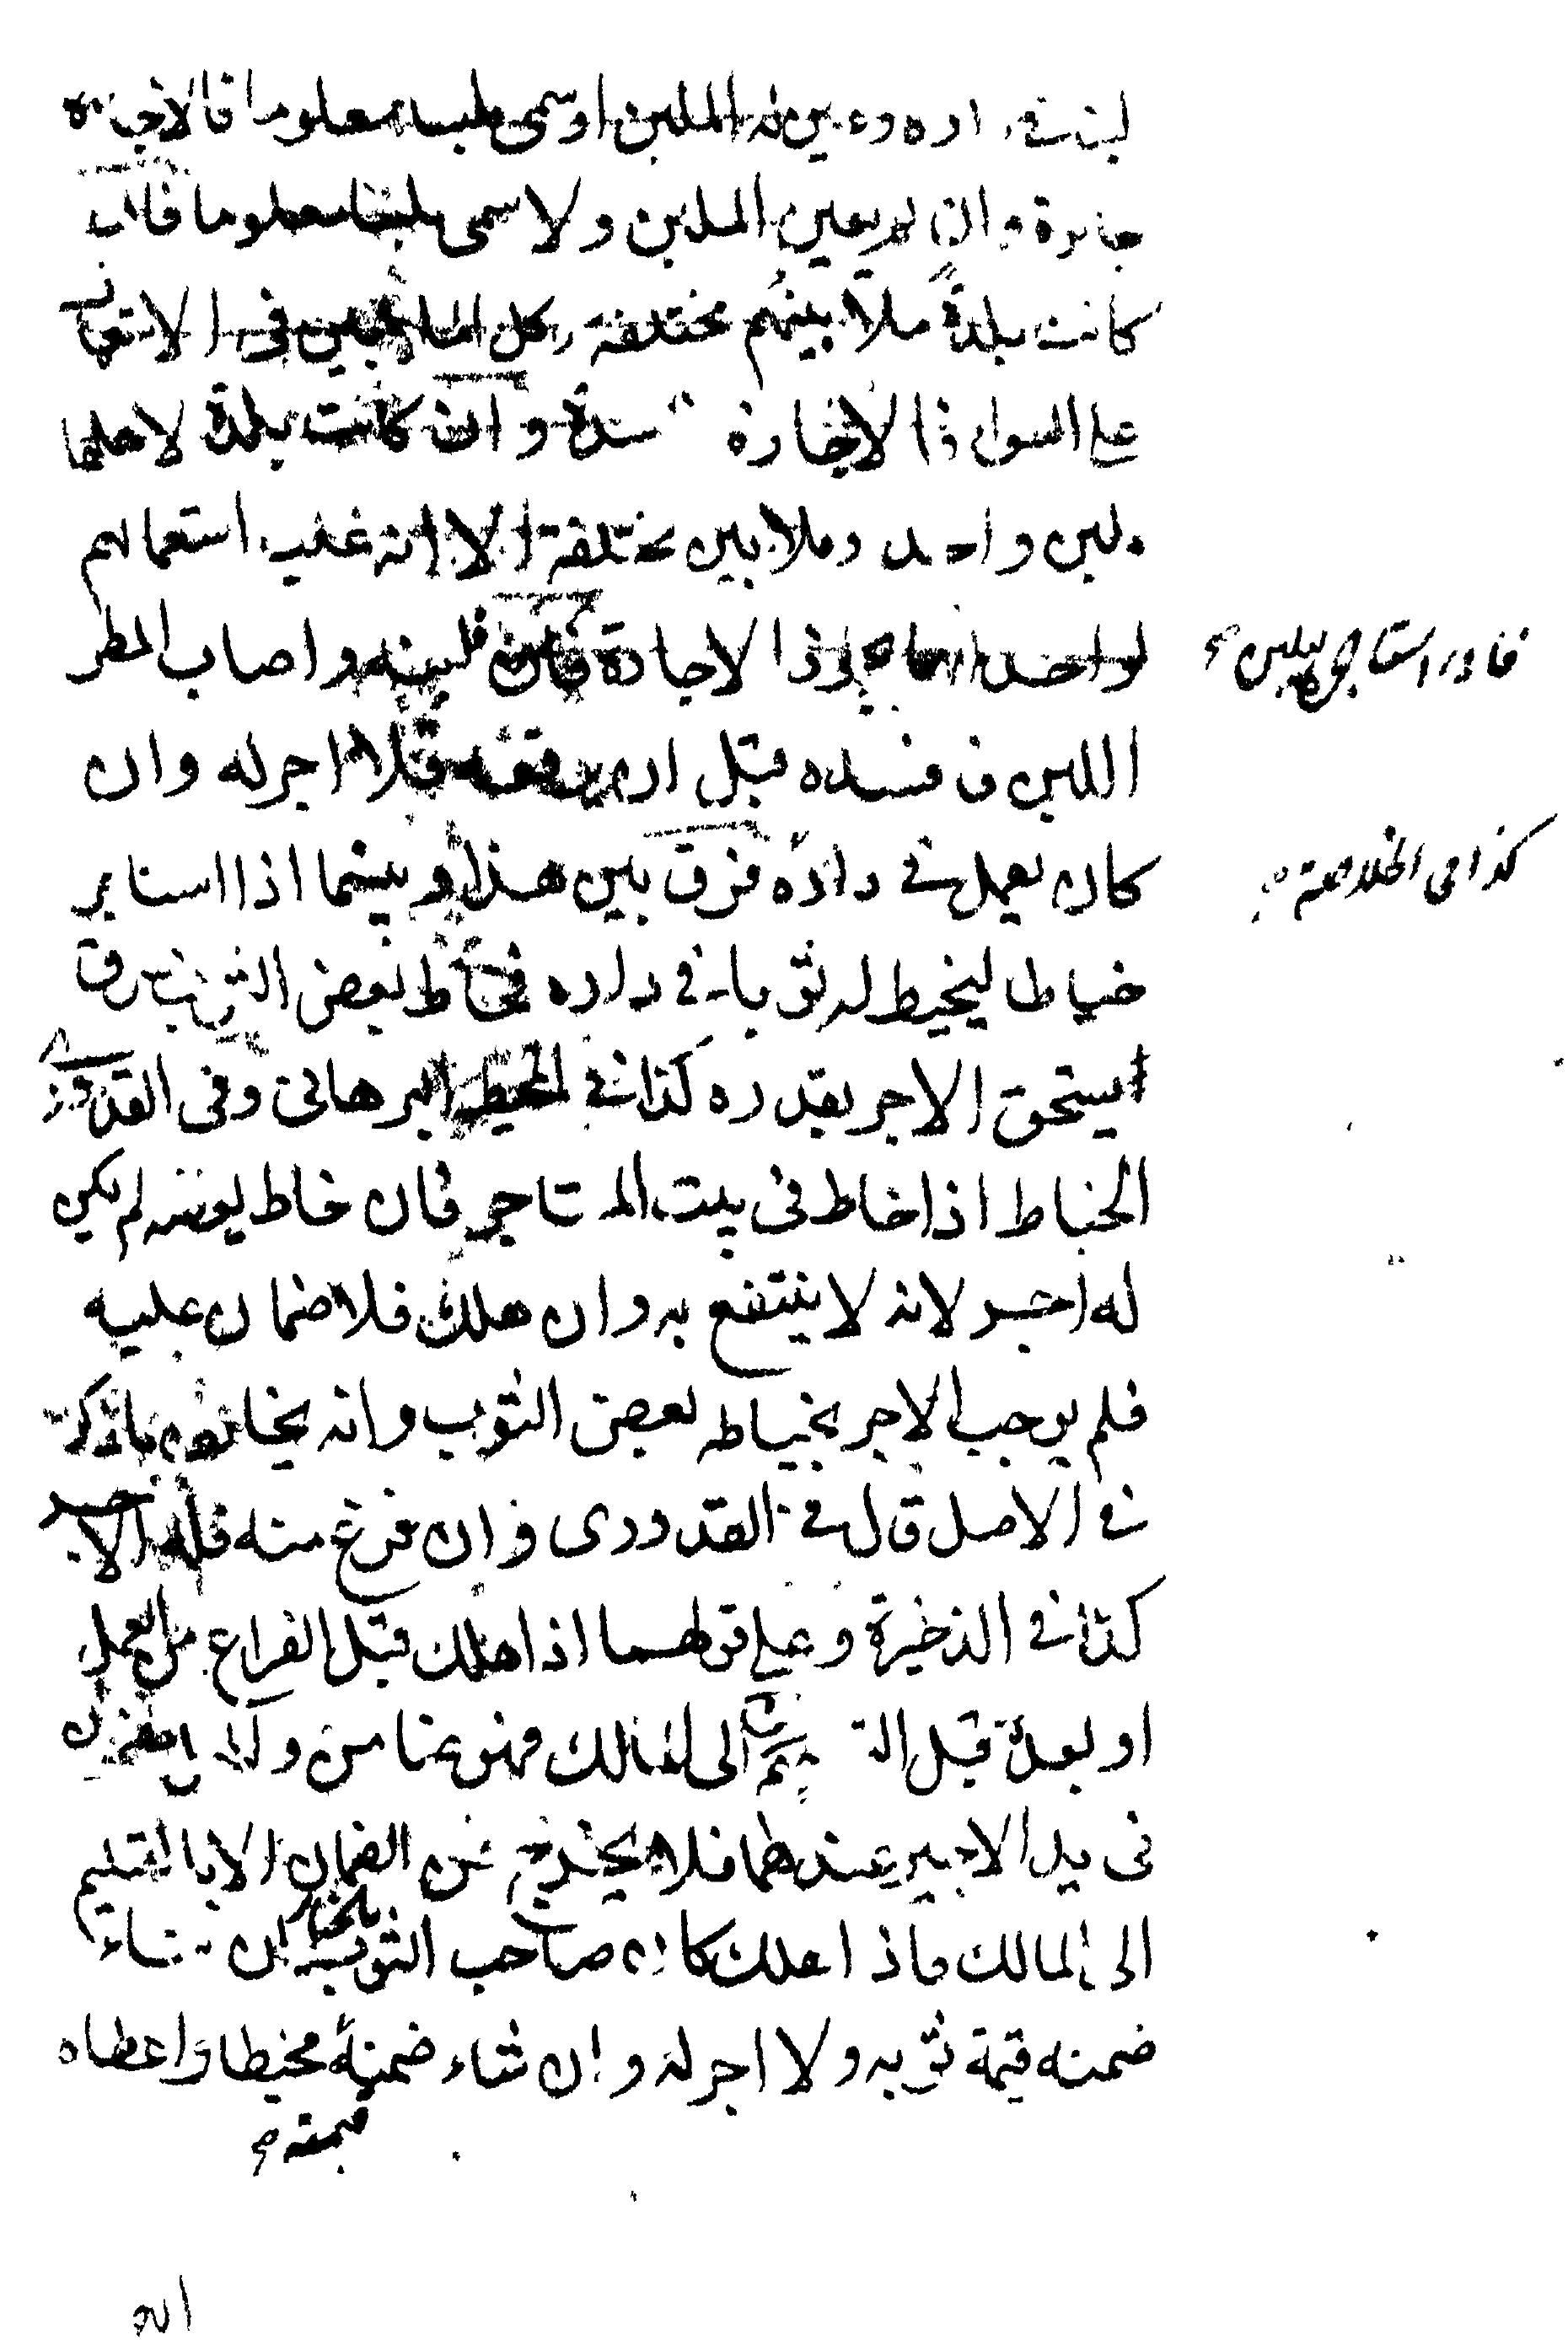 لبن في داره وعين له الملبن او سمى ملبنا معلوما فالاجارة
جائزة وان لم يعين الملبن ولا سمى ملبنا معلوما فان
كانت بلدة ملابينهم مختلفة وكل الملابين في الاستعمال
على السواء فالاجارة فاسدة وان كانت بلدة لاهلها
ملبن واحد وملابين مختلفة الا انه غلب استعمالهم
لواحد منها فالاجارة فان لبنه واصاب المطر
اللبن فافسده قبل ان يرفعه فلا اجر له وان
كان يعمل في داره فرق بين هذا وبينما اذا استاجر
خياطا ليخيط له ثوبا في داره فخاط بعض الثوب فسرق
يستحق الاجر بقدره كذا في المحيط البرهاني وفى القدوري
الخياط اذا خاط في بيت المستاجر فان خاط بعضه لم يكن
له اجر لانه لا ينتفع به وان هلك فلا ضمان عليه
فلم يوجب الاجر بخياطه بعض الثوب وانه يخالف ما ذكر
في الاصل قال في القدوري وان فرغ منه فله الاجر
كذا في الذخيرة وعلى قولهما اذا هلك قبل الفراغ من العمل
او بعده قبل التسليم الى المالك فهو ضامن ولان
في يد الاجير عندهما فلا يخرج عن الضمان الا بالتسليم
الى المالك فاذا هلك كان صاحب الثوب بالخيار ان شاء
ضمنه قيمة ثوبه ولا اجر له وان شاء ضمنه مخيطا واعطاه
قيمته
كذا في الخلاصة